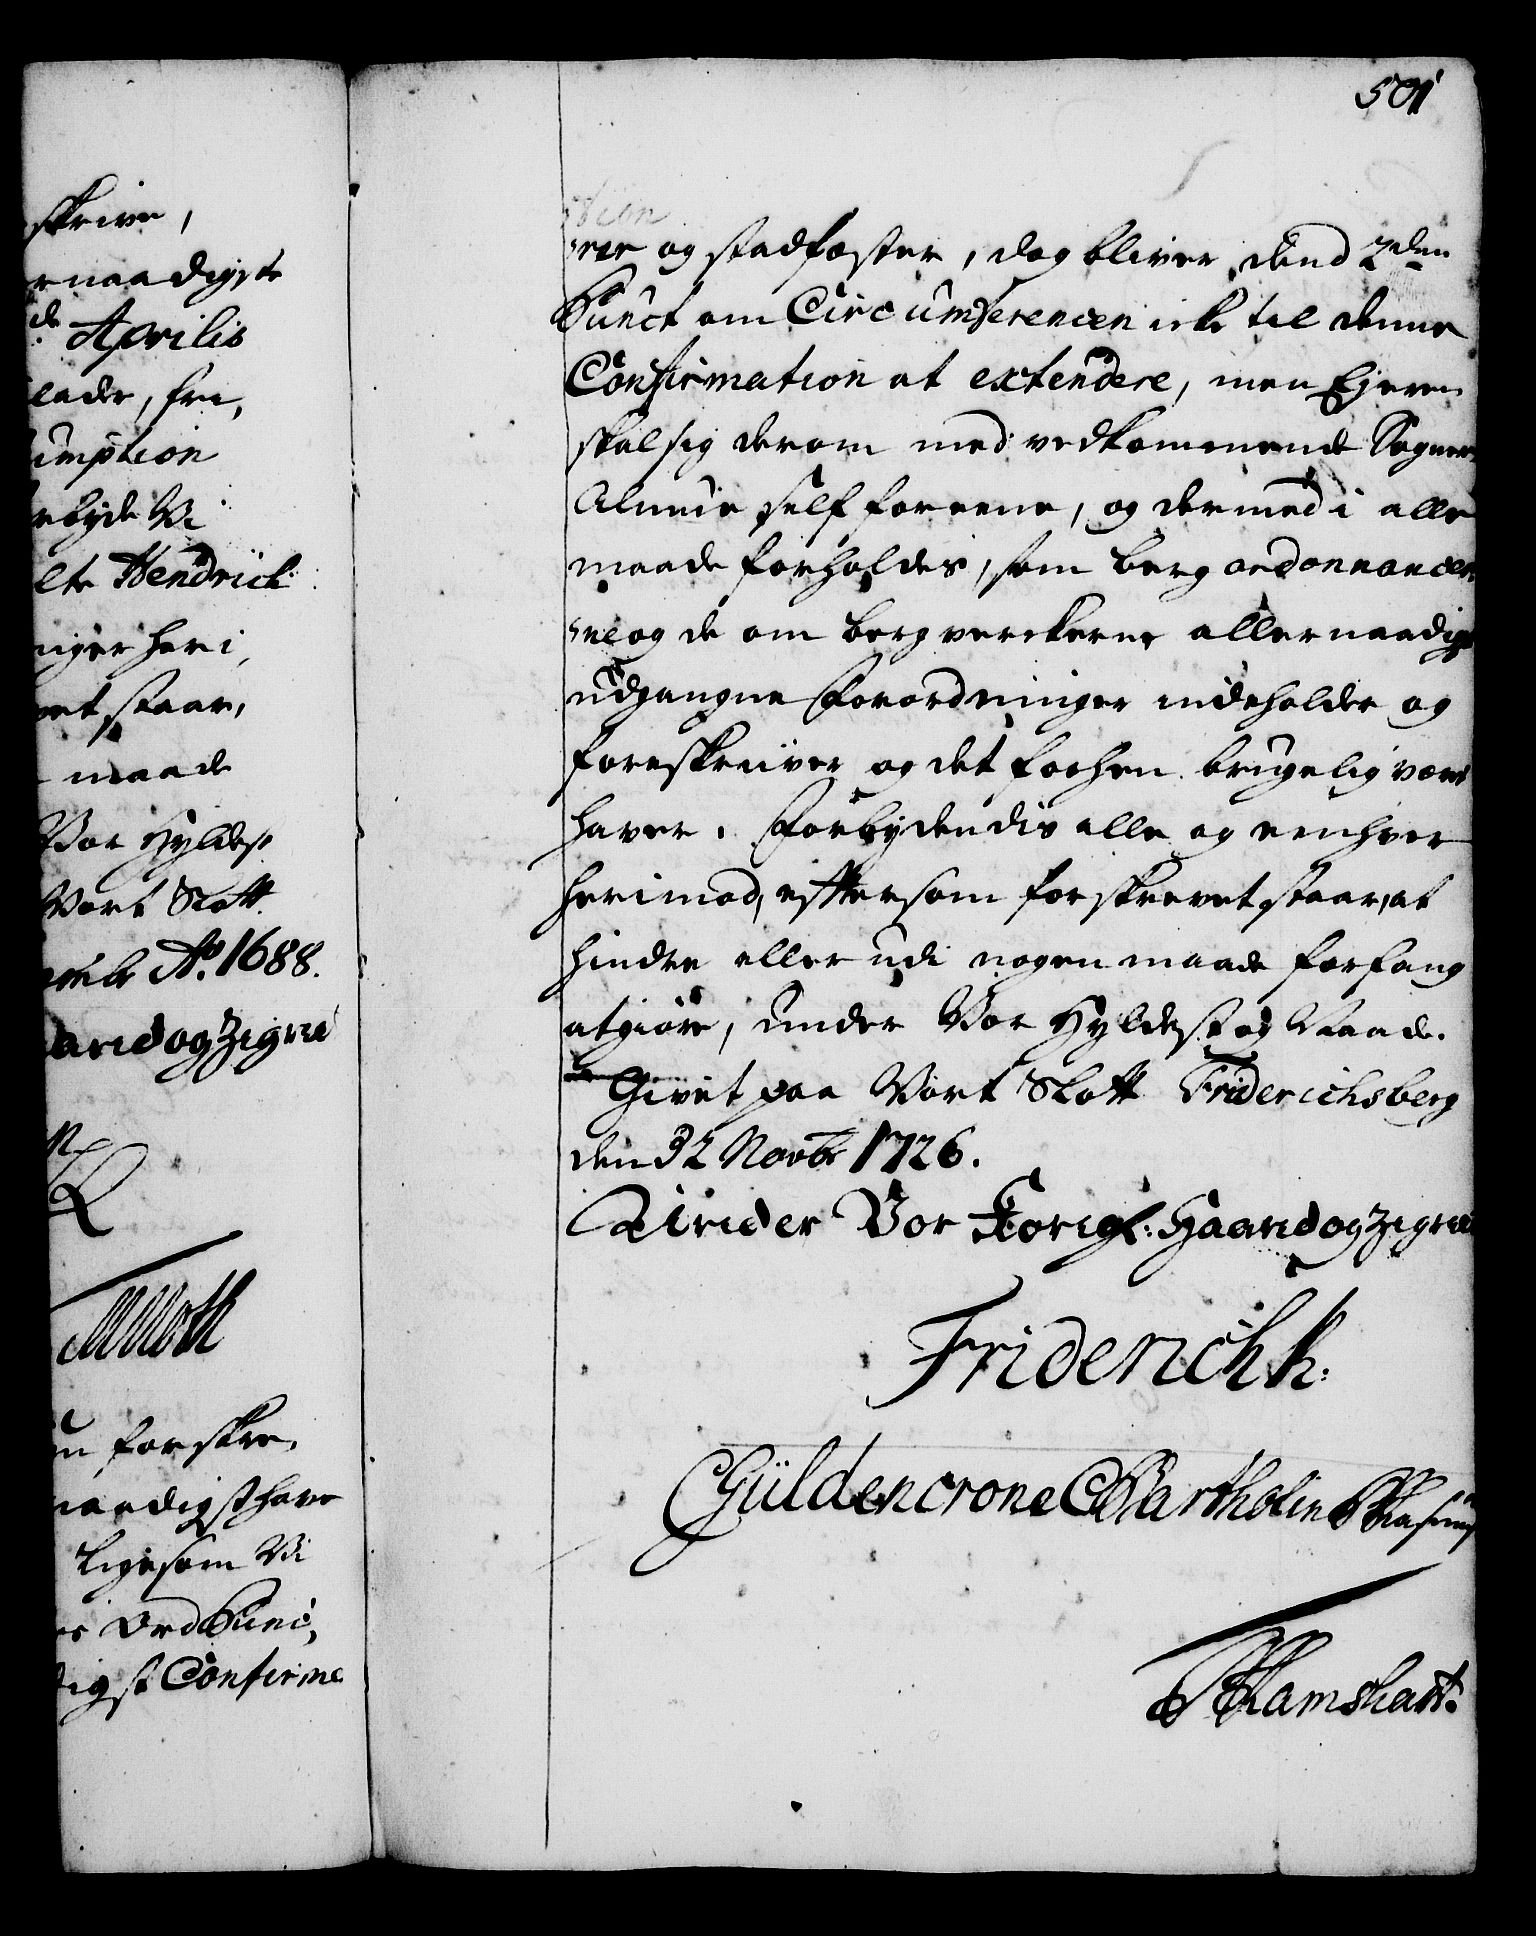 501
skrive,
rnaadigste
de Aprilis
lade, fri,
umption
rbyde Vi
lte Hendrich
nger heri,
vet staar,
maade
Vor Hyldest
Vort Slott
Ao. 1688.
aand og Zignet
MMoth
forskre,
naadigst have
ligesom Vi
Ord Punc,
digst Confirme
rer og stadfæster, dog bliver dend 2den
Punct om Circumferencen icke til denne
Confirmation at extendere, men Ejeren
skal sig derom med vedkommende Sogner
Almue self foreene, og dermed i alle
maade forholdes, som berg ordonnancer
ne og de om bergverckerne allernaadigst
udgangne Forordninger indeholder og
foreskriver og det forhen brugelig været
haver. Forbydendis alle og eenhver
herimod, eftersom forskrevet staar, at
hindre eller udi nogen maade forfang
at giøre, under Vor Hyldest og Naade.
Givet paa Vort Slott Friderichsberg
den 32 Novbr 1726.
Under Vor Kongl: Haand og Zignet
Friderich R:
CGüldencrone CBartholin
TRamshart.